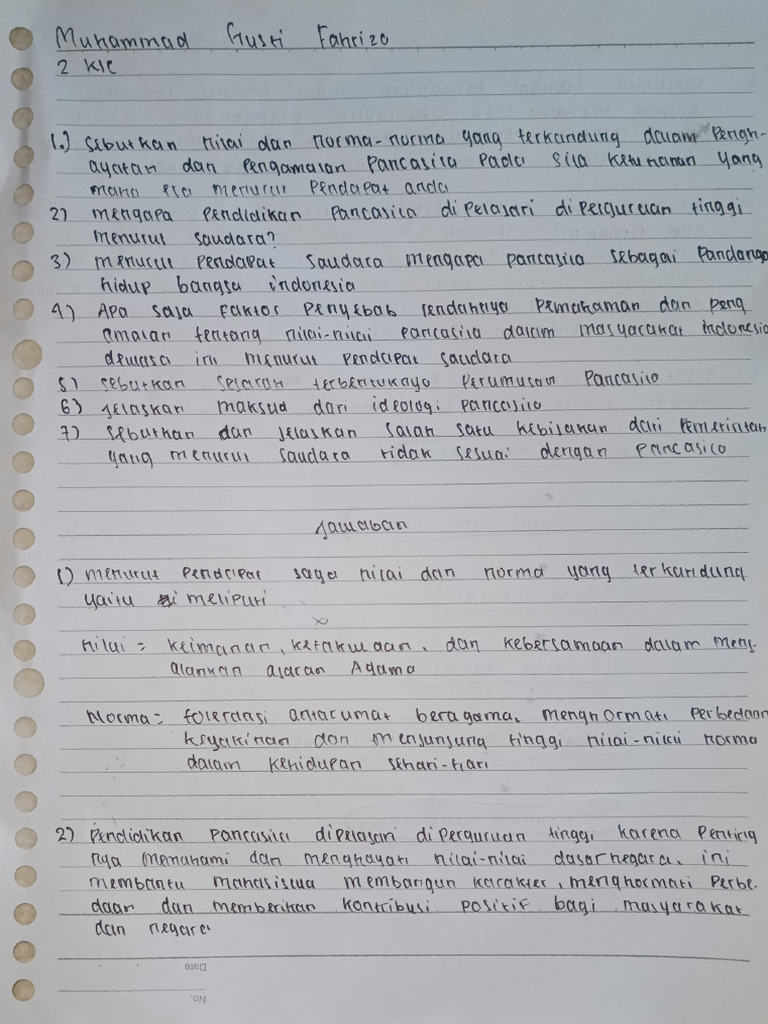 Muhammad Gusti Fahrizo
2 KIC
1.) Sebutkan nilai dan norma-norma yang terkandung dalam Pengh-
ayatan dan Pengamalan Pancasila pada sila ketuhanan yang
maha esa menurut pendapat anda
2) mengapa pendidikan Pancasila dipelajari diperguruan tinggi
menurut saudara?
3) menurut pendapat saudara mengapa pancasila sebagai Pandanga
hidup bangsa indonesia
4) Apa saja faktor penyebab rendahnya pemahaman dan peng
amalan tentang nilai-nilai pancasila dalam masyarakat indonesia
dewasa ini menurut pendapat saudara
5) sebutkan sejarah terbentuknya Perumusan Pancasila
6) jelaskan maksud dari ideologi pancasila
7) sebutkan dan jelaskan salah satu kebijakan dari Pemerintah
yang menurut saudara tidak sesuai dengan pancasila
Jawaban
1) menurut pendapat saya nilai dan norma yang terkandung
yaitu meliputi
nilai = keimanan, ketakwaan, dan kebersamaan dalam menj-
alankan ajaran Agama
Norma = toleransi antarumat beragama, menghormati perbedaan
keyakinan dan menjunjung tinggi nilai-nilai norma
dalam kehidupan sehari-hari
2) Pendidikan pancasila dipelajari diperguruan tinggi karena Penting
nya memahami dan menghayati nilai-nilai dasar negara. ini
membantu mahasiswa membangun karakter, menghormati perbe-
daan dan memberikan kontribusi positif bagi masyarakat
dan negara.
Date
No.